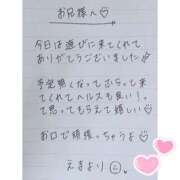 お兄様へ♡
今日は遊びに来てくれて
ありがとうございました♡
予定無くなってぷらって来
てくれてヘルスも良い！。
って思ってもらえて嬉しい♡
お口で頑張っちゃうよ♡
えまより